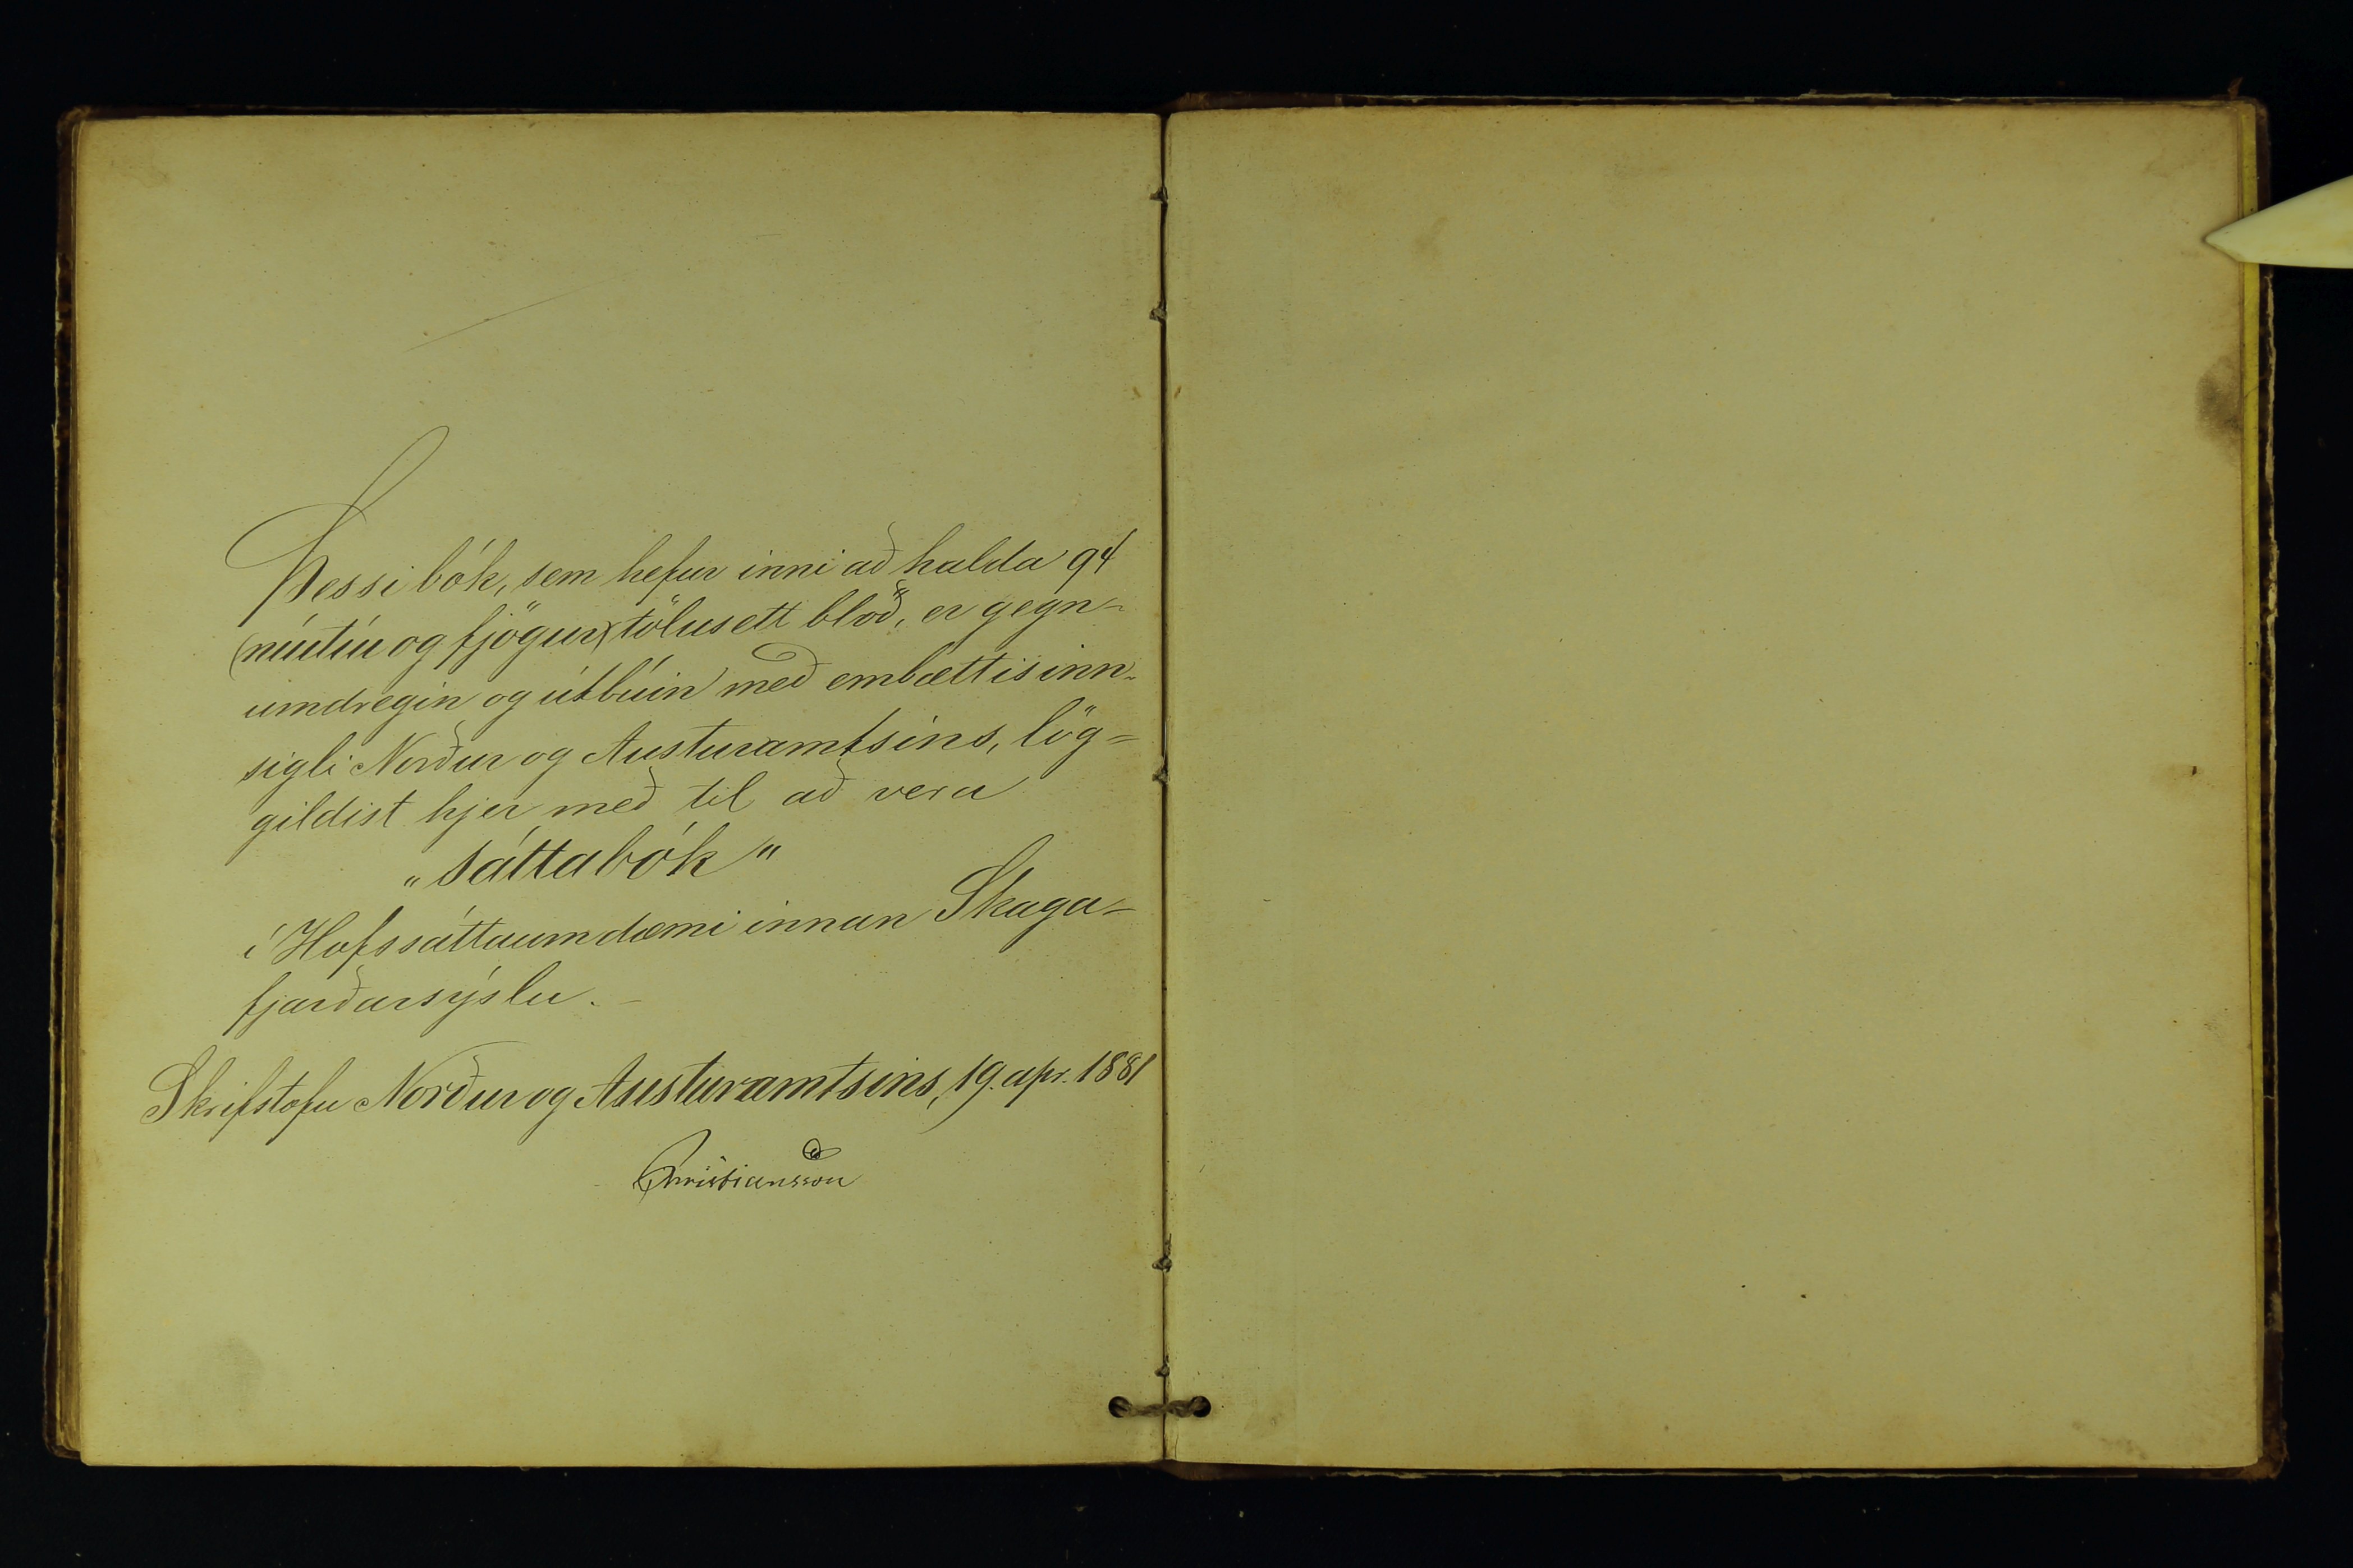 Þessi bók, sem hefur inni að halda 94
(níutíu og fjögur) tölusett blöð, er gegn-
umdregin og útbúin með embættisinn-
sigli Norður og Austuramtsins, lög-
gildist hjer með til að vera
„sáttabók"
í Hofssáttaumdæmi innan Skaga-
fjarðarsýslu. -
Skrifstofu Norður og Austuramtsins, 19. apr. 1881
Christiansson